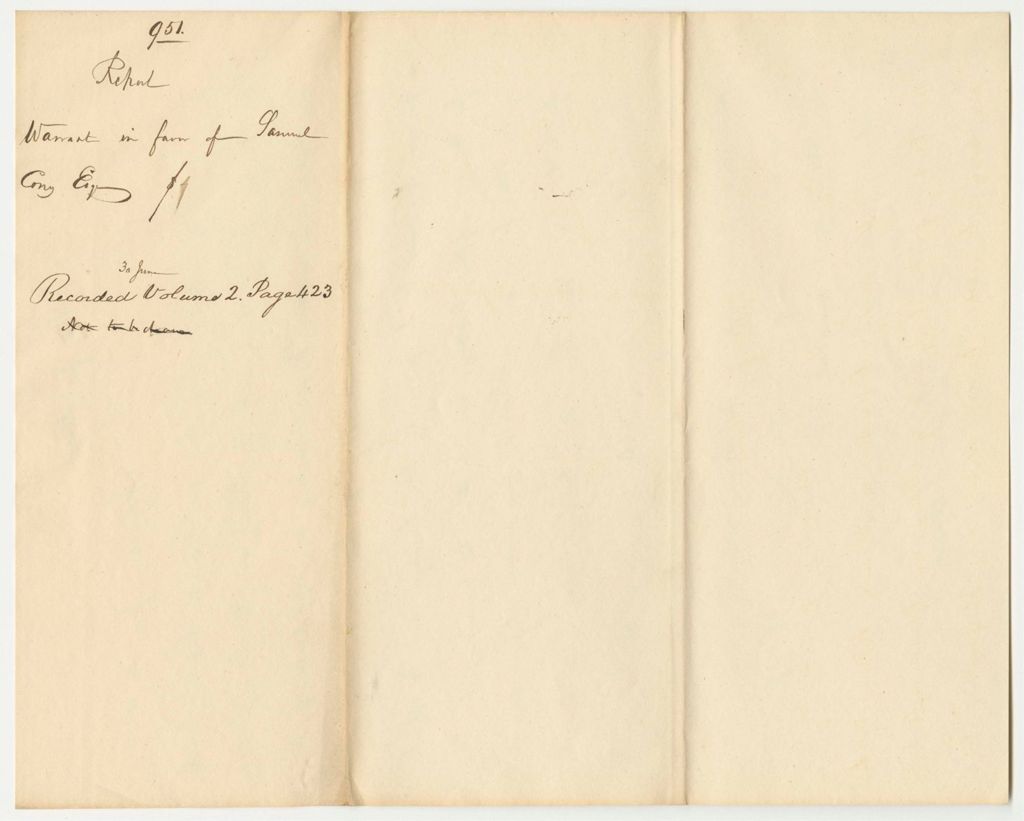 951.
Report
Warrant in favor of Samuel
Cony Esq $
30 June
Recorded Volume 2. Page 423
Not to be